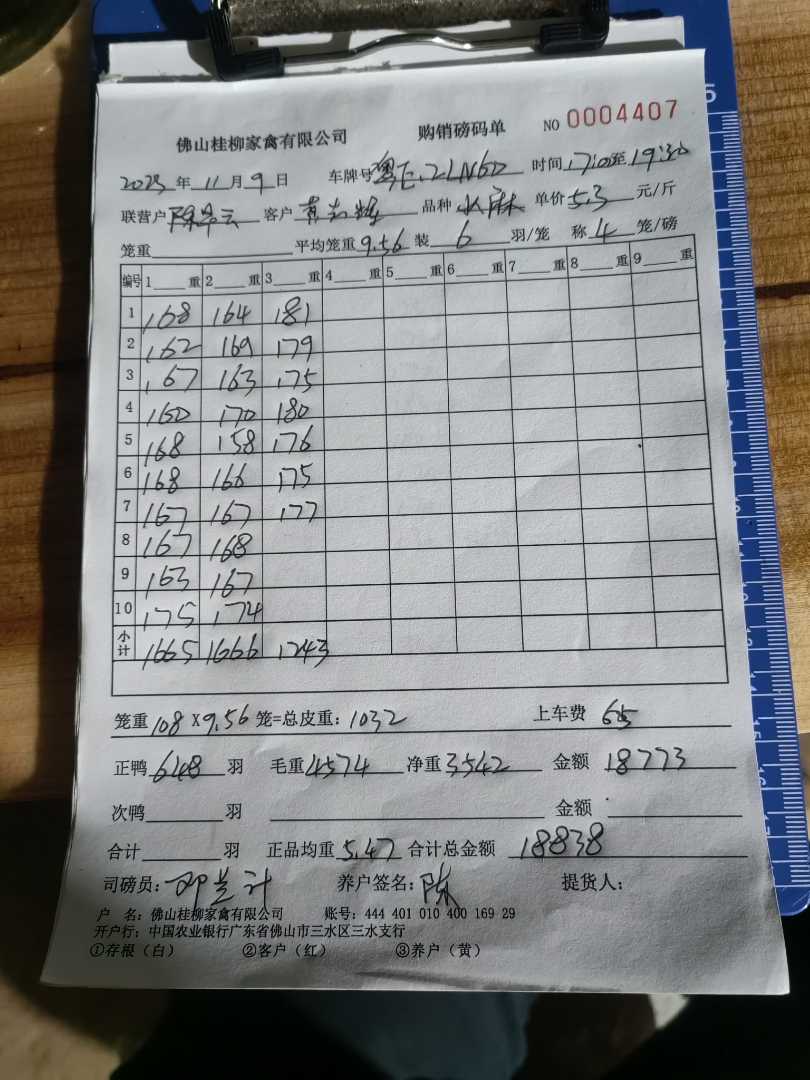 佛山桂柳家禽有限公司 购销磅码单 NO 0004407
2025 年 11 月 9 日 车牌号 粤E.2LN60 时间 17:00至 19:30
联营户 客户 品种 麻 单价 5.3 元/斤
笼重 平均笼重 9.56 装 6 羽/笼 称 4 笼/磅
编号 1 重 2 重 3 重 4 重 5 重 6 重 7 重 8 重 9 重
1 168 164 181
2 162 169 179
3 167 163 175
4 160 170 180
5 168 158 176
6 168 166 175
7 167 167 177
8 167 168
9 163 167
10 175 174
小计 1665 1666 1243
笼重 108 X 9.56 笼=总皮重: 1032 上车费 65
正鸭 648 羽 毛重 4574 净重 3542 金额 18773
次鸭 羽 金额
合计 羽 正品均重 5.47 合计总金额 18838
司磅员: 养户签名: 陈 提货人:
户 名: 佛山桂柳家禽有限公司 账号: 444 401 010 400 169 29
开户行: 中国农业银行广东省佛山市三水区三水支行
①存根（白） ②客户（红） ③养户（黄）